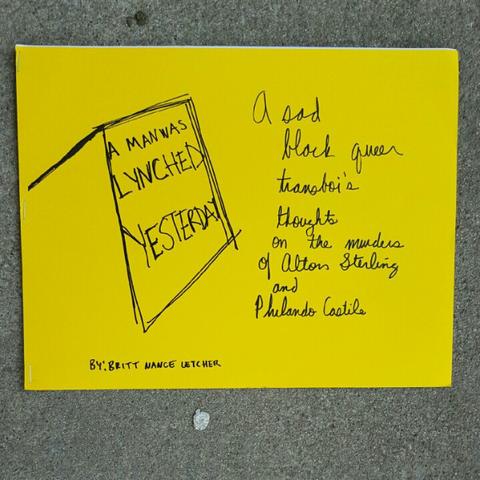 A MAN WAS
LYNCHED
YESTERDAY
A sad
black queer
transboi's
thoughts
on the murders
of Alton Sterling
and
Philando Castile
BY: BRITT NANCE LETCHER